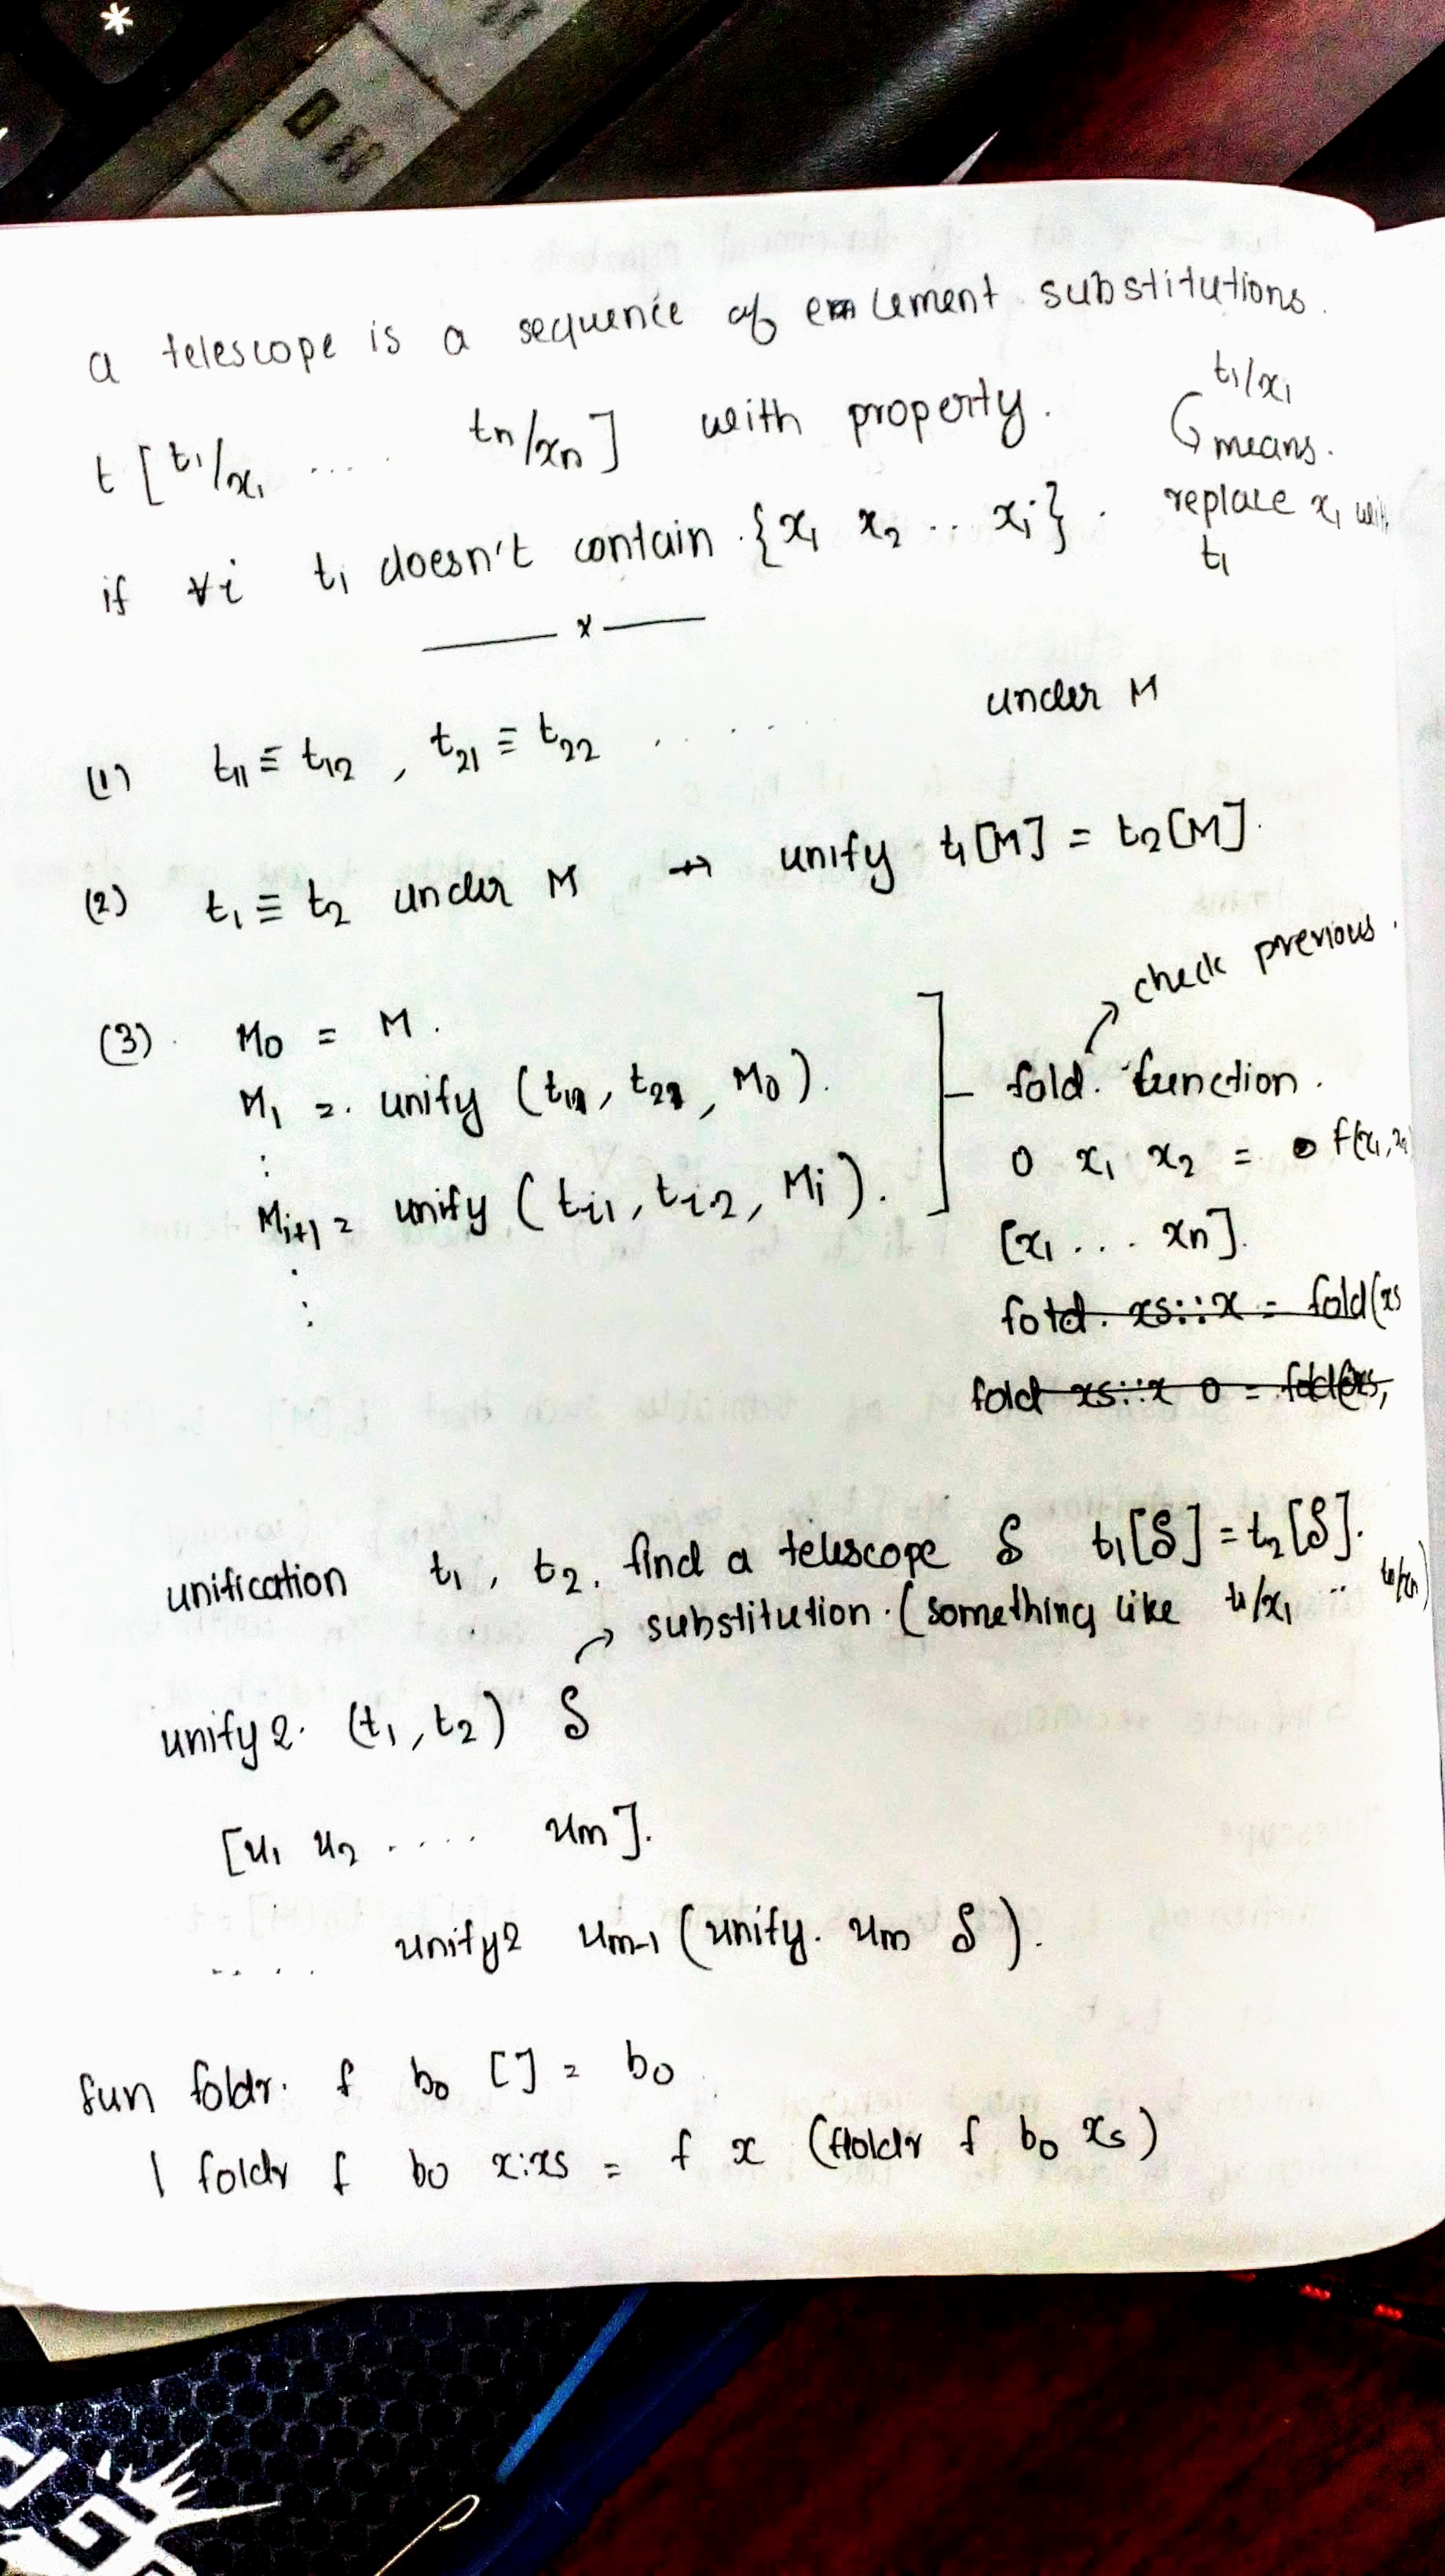 a telescope is a sequence of element substitutions.
t [t1/x1 .... tn/xn] with property.
t1/x1
means.
replace x1 with
t1
if ∀i ti doesn't contain {x1 x2 .. xi}.
x
(1) t11 ≡ t12 , t21 ≡ t22 ...... under M
(2) t1 ≡ t2 under M → unify t1[M] = t2[M].
(3). M0 = M.
M1 = unify (t11, t21, M0).
:
Mi+1 = unify (ti1, ti2, Mi).
check previous.
fold. function.
0 x1 x2 = f(x1, x2
[x1 ... xn].
fold. xs::x = fold(xs
fold xs::x 0 = fold(xs,
unification t1, t2. find a telescope S t1[S] = t2[S].
substitution. (something like t1/x1 .. tn/xn)
unify2. (t1, t2) S
[u1 u2 ..... um].
.... unify2 um-1 (unify. um S).
fun foldr. f b0 [] = b0
| foldr f b0 x:xs = f x (foldr f b0 xs)